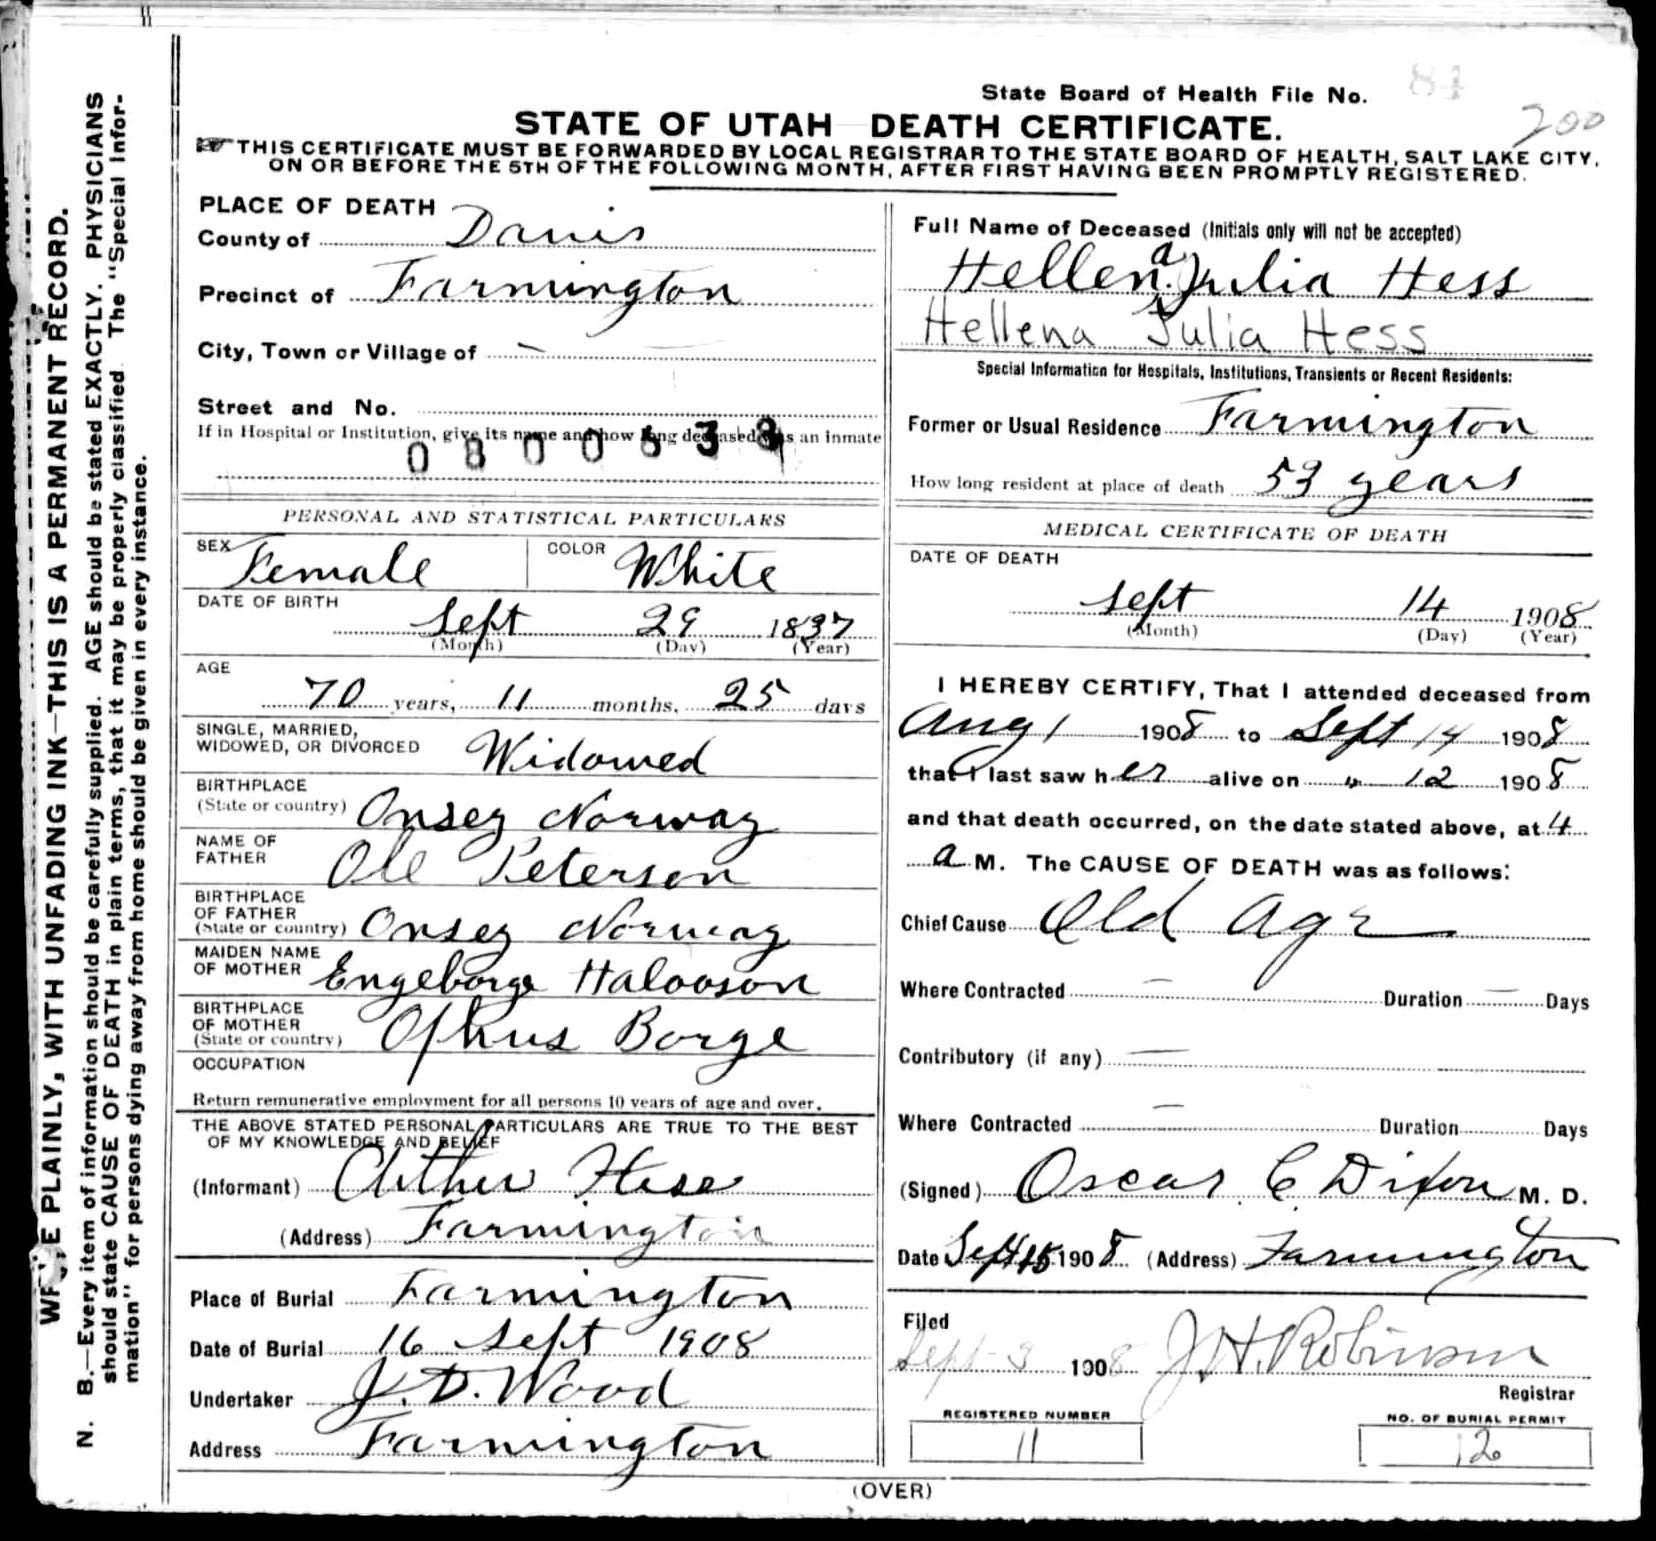 State Board of Health File No. 81
200
STATE OF UTAH DEATH CERTIFICATE.
THIS CERTIFICATE MUST BE FORWARDED BY LOCAL REGISTRAR TO THE STATE BOARD OF HEALTH, SALT LAKE CITY,
ON OR BEFORE THE 5TH OF THE FOLLOWING MONTH, AFTER FIRST HAVING BEEN PROMPTLY REGISTERED.
WRITE PLAINLY, WITH UNFADING INK—THIS IS A PERMANENT RECORD.
N. B.—Every item of information should be carefully supplied. AGE should be stated EXACTLY. PHYSICIANS
should state CAUSE OF DEATH in plain terms, that it may be properly classified. The "Special Infor-
mation" for persons dying away from home should be given in every instance.
PLACE OF DEATH
County of Davis
Precinct of Farmington
City, Town or Village of —
Street and No.
If in Hospital or Institution, give its name and how long deceased was an inmate
PERSONAL AND STATISTICAL PARTICULARS
SEX Female COLOR White
DATE OF BIRTH
Sept 29 1837
(Month) (Day) (Year)
AGE
70 years, 11 months, 25 days
SINGLE, MARRIED,
WIDOWED, OR DIVORCED Widowed
BIRTHPLACE
(State or country) Onsey Norway
NAME OF
FATHER Ole Peterson
BIRTHPLACE
OF FATHER
(State or country) Onsey Norway
MAIDEN NAME
OF MOTHER Engeborge
BIRTHPLACE
OF MOTHER
(State or country) Borge
OCCUPATION
Return remunerative employment for all persons 10 years of age and over.
THE ABOVE STATED PERSONAL PARTICULARS ARE TRUE TO THE BEST
OF MY KNOWLEDGE AND BELIEF
(Informant) Arther Hess
(Address) Farmington
Place of Burial Farmington
Date of Burial 16 Sept 1908
Undertaker J. D. Wood
Address Farmington
Full Name of Deceased (Initials only will not be accepted)
Hellena Julia Hess
Hellena Julia Hess
Special Information for Hospitals, Institutions, Transients or Recent Residents:
Former or Usual Residence Farmington
How long resident at place of death 53 years
MEDICAL CERTIFICATE OF DEATH
DATE OF DEATH
Sept 14 1908
(Month) (Day) (Year)
I HEREBY CERTIFY, That I attended deceased from
Aug 1 1908 to Sept 14 1908
that I last saw her alive on " 12 1908
and that death occurred, on the date stated above, at 4
a M. The CAUSE OF DEATH was as follows:
Chief Cause Old Age
Where Contracted — Duration — Days
Contributory (if any) —
Where Contracted — Duration Days
(Signed) Oscar C Dixon M. D.
Date Sept 15 1908 (Address) Farmington
Filed
Sept 1908 J H. Robinson
Registrar
REGISTERED NUMBER
11
NO. OF BURIAL PERMIT
12
(OVER)